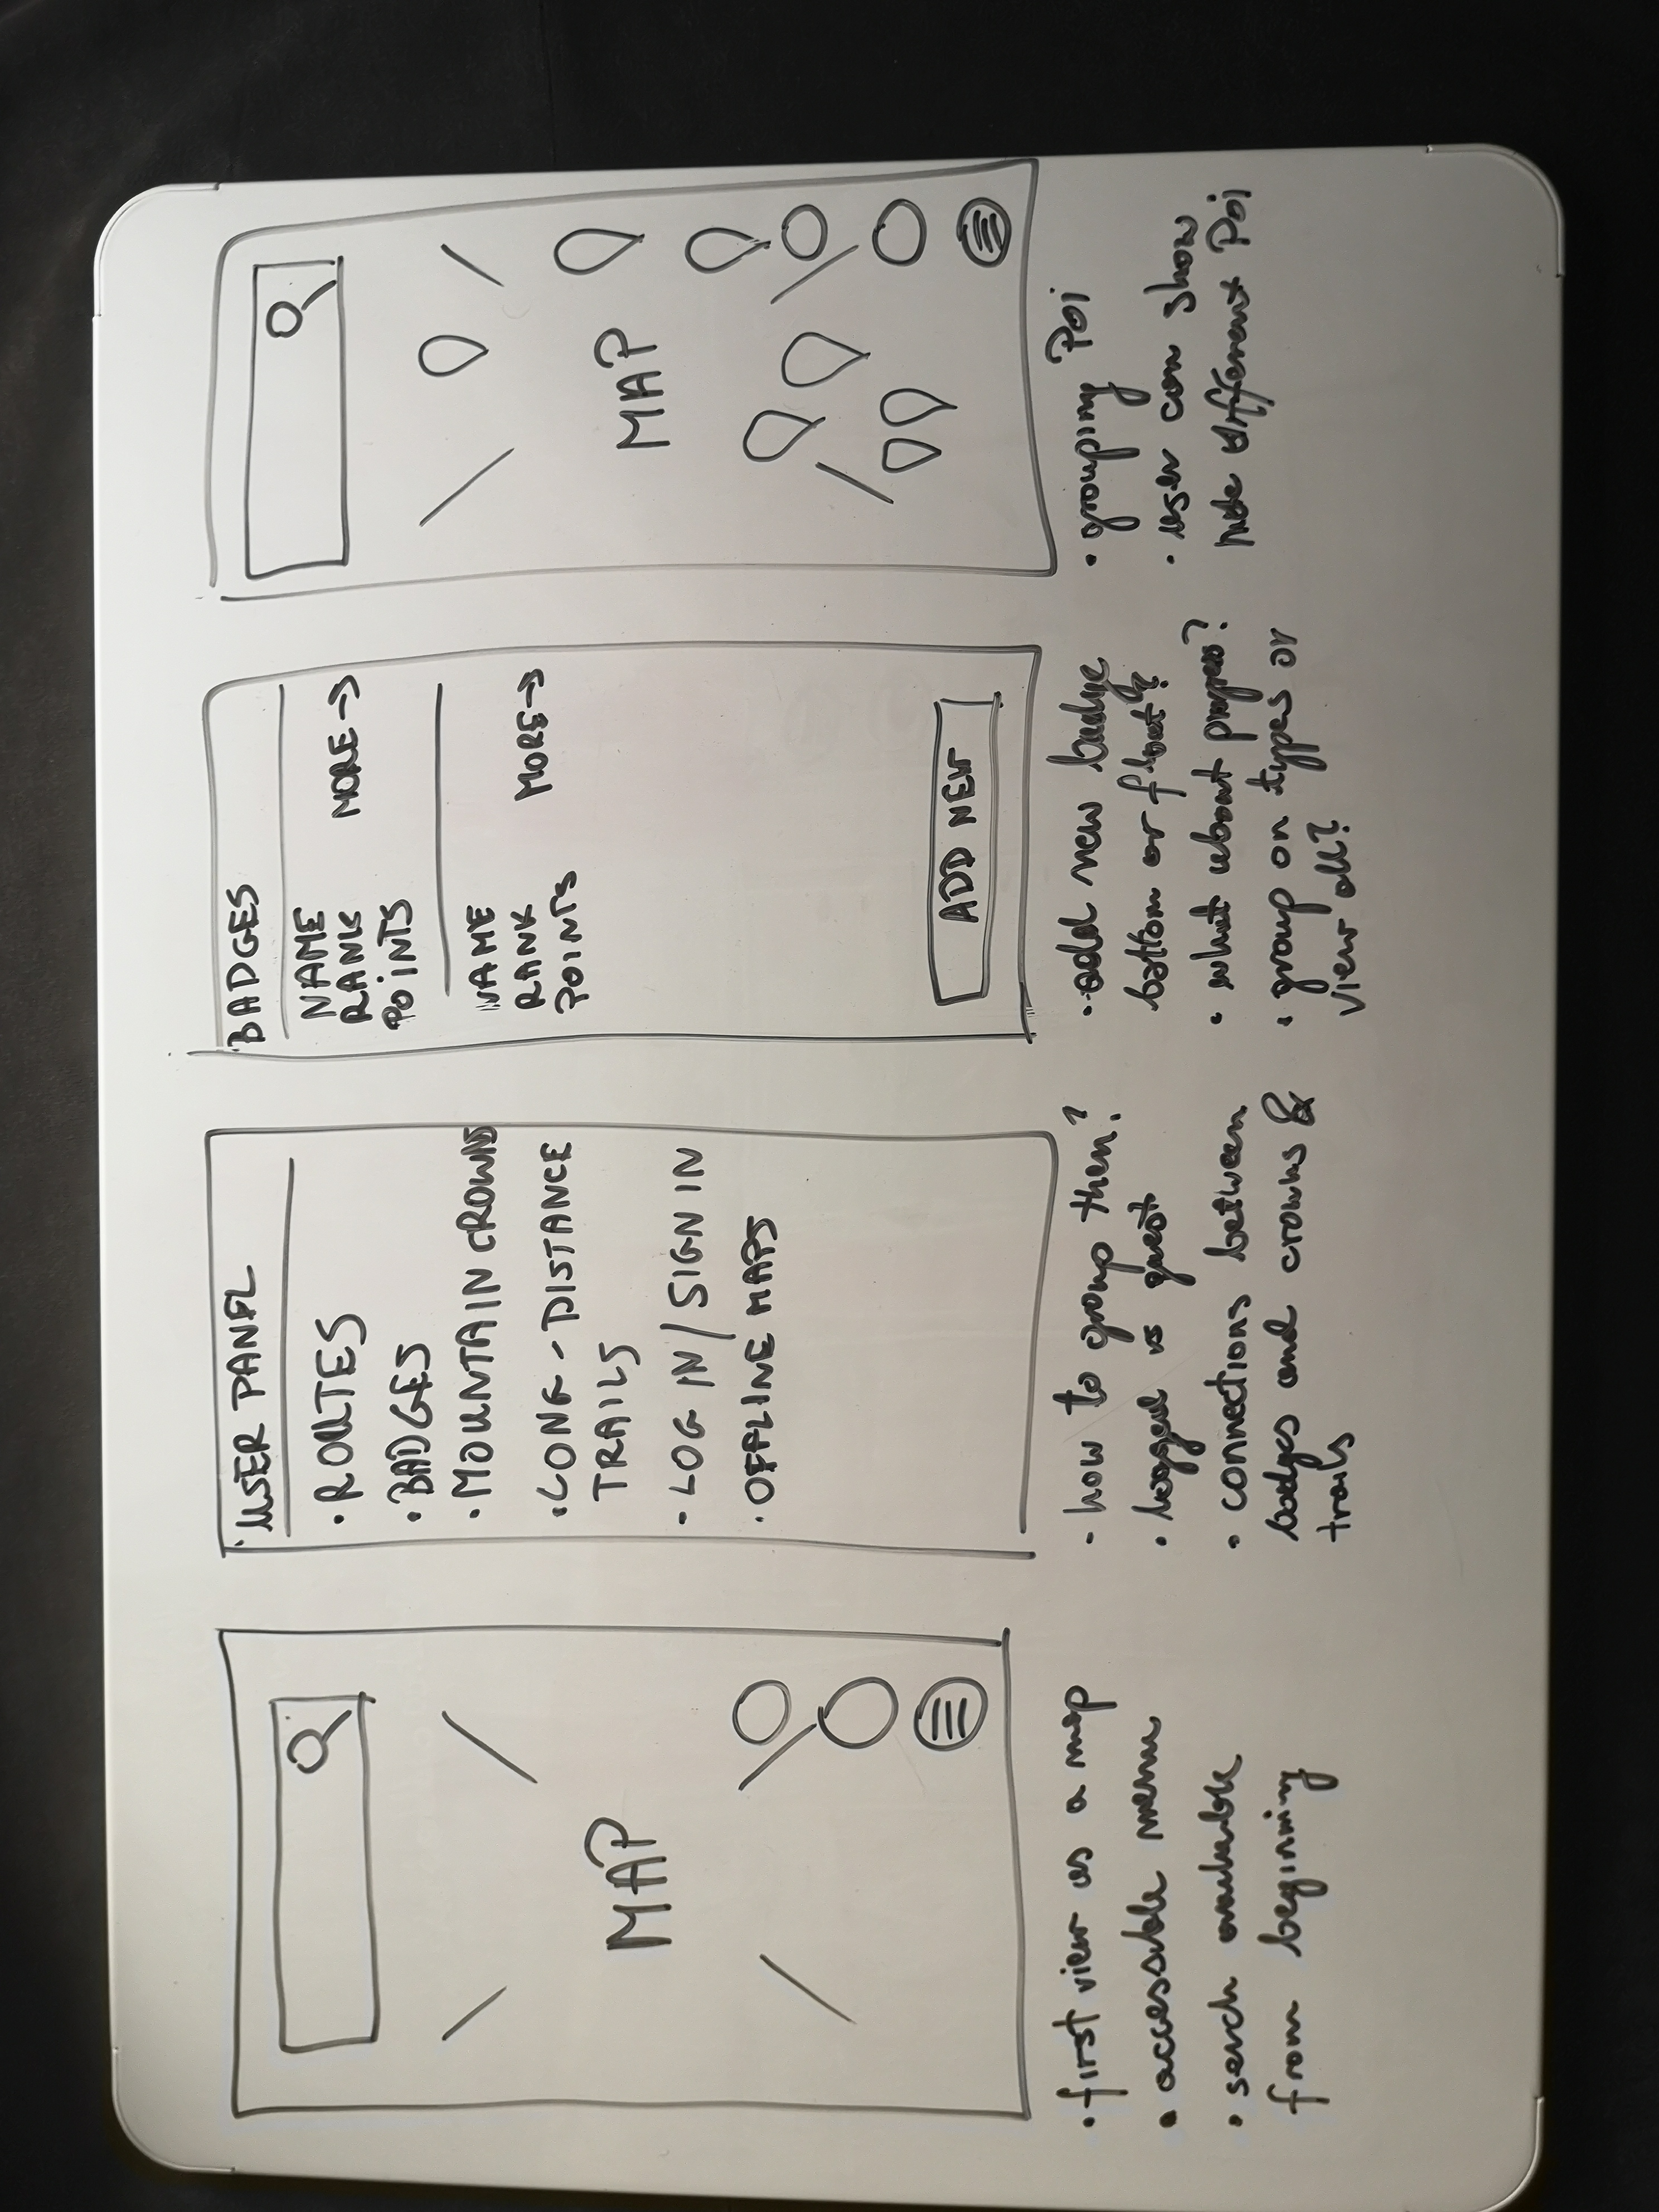 MAP
• first view as a map
• accessible menu
• serch available
from begining
USER PANEL
• ROUTES
• BADGES
• MOUNTAIN CROWNS
• LONG-DISTANCE
TRAILS
• LOG IN/SIGN IN
• OFFLINE MAPS
• how to group them?
• logged vs guest
• connections between
badges and crowns &
trails
BADGES
NAME
RANK MORE →
POINTS
NAME
RANK MORE →
POINTS
ADD NEW
• add new badge
bottom or float?
• what about progress?
• group on types or
view all?
MAP
• grouping Poi
• user can show
hide different Poi